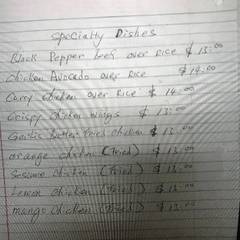 Specialty Dishes
Black Pepper beef over Rice $ 13.00
Chicken Avocado over Rice $ 14.00
Curry Chicken over Rice $ 14.00
Crispy Chicken wings $ 13.00
Garlic Butter fried chicken $ 13.00
orange chicken (fried) $ 13.00
Sesame Chicken (fried) $ 13.00
Lemon Chicken (fried) $ 13.00
mango Chicken (fried) $ 13.00